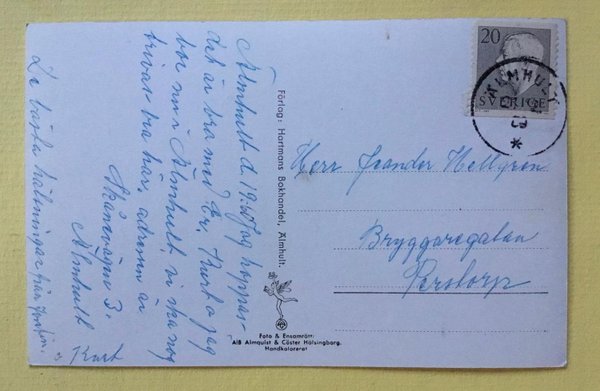 Älmhult d. 19.
Jag hoppas
det är bra med Er. Kurt o jag
bor nu i Älmhult, vi ska nog
trivas bra här, adressen är
Skånevägen 3.
Älmhult
De bästa hälsningar från
o Kurt
Förlag: Hartmans Bokhandel, Älmhult.
Foto & Ensamrätt:
A/B Almquist & Cöster Hälsingborg.
Handkolorerat
20
SVERIGE
ÄLMHULT
Herr Jeander Hellgren
Bryggaregatan
Perstorp